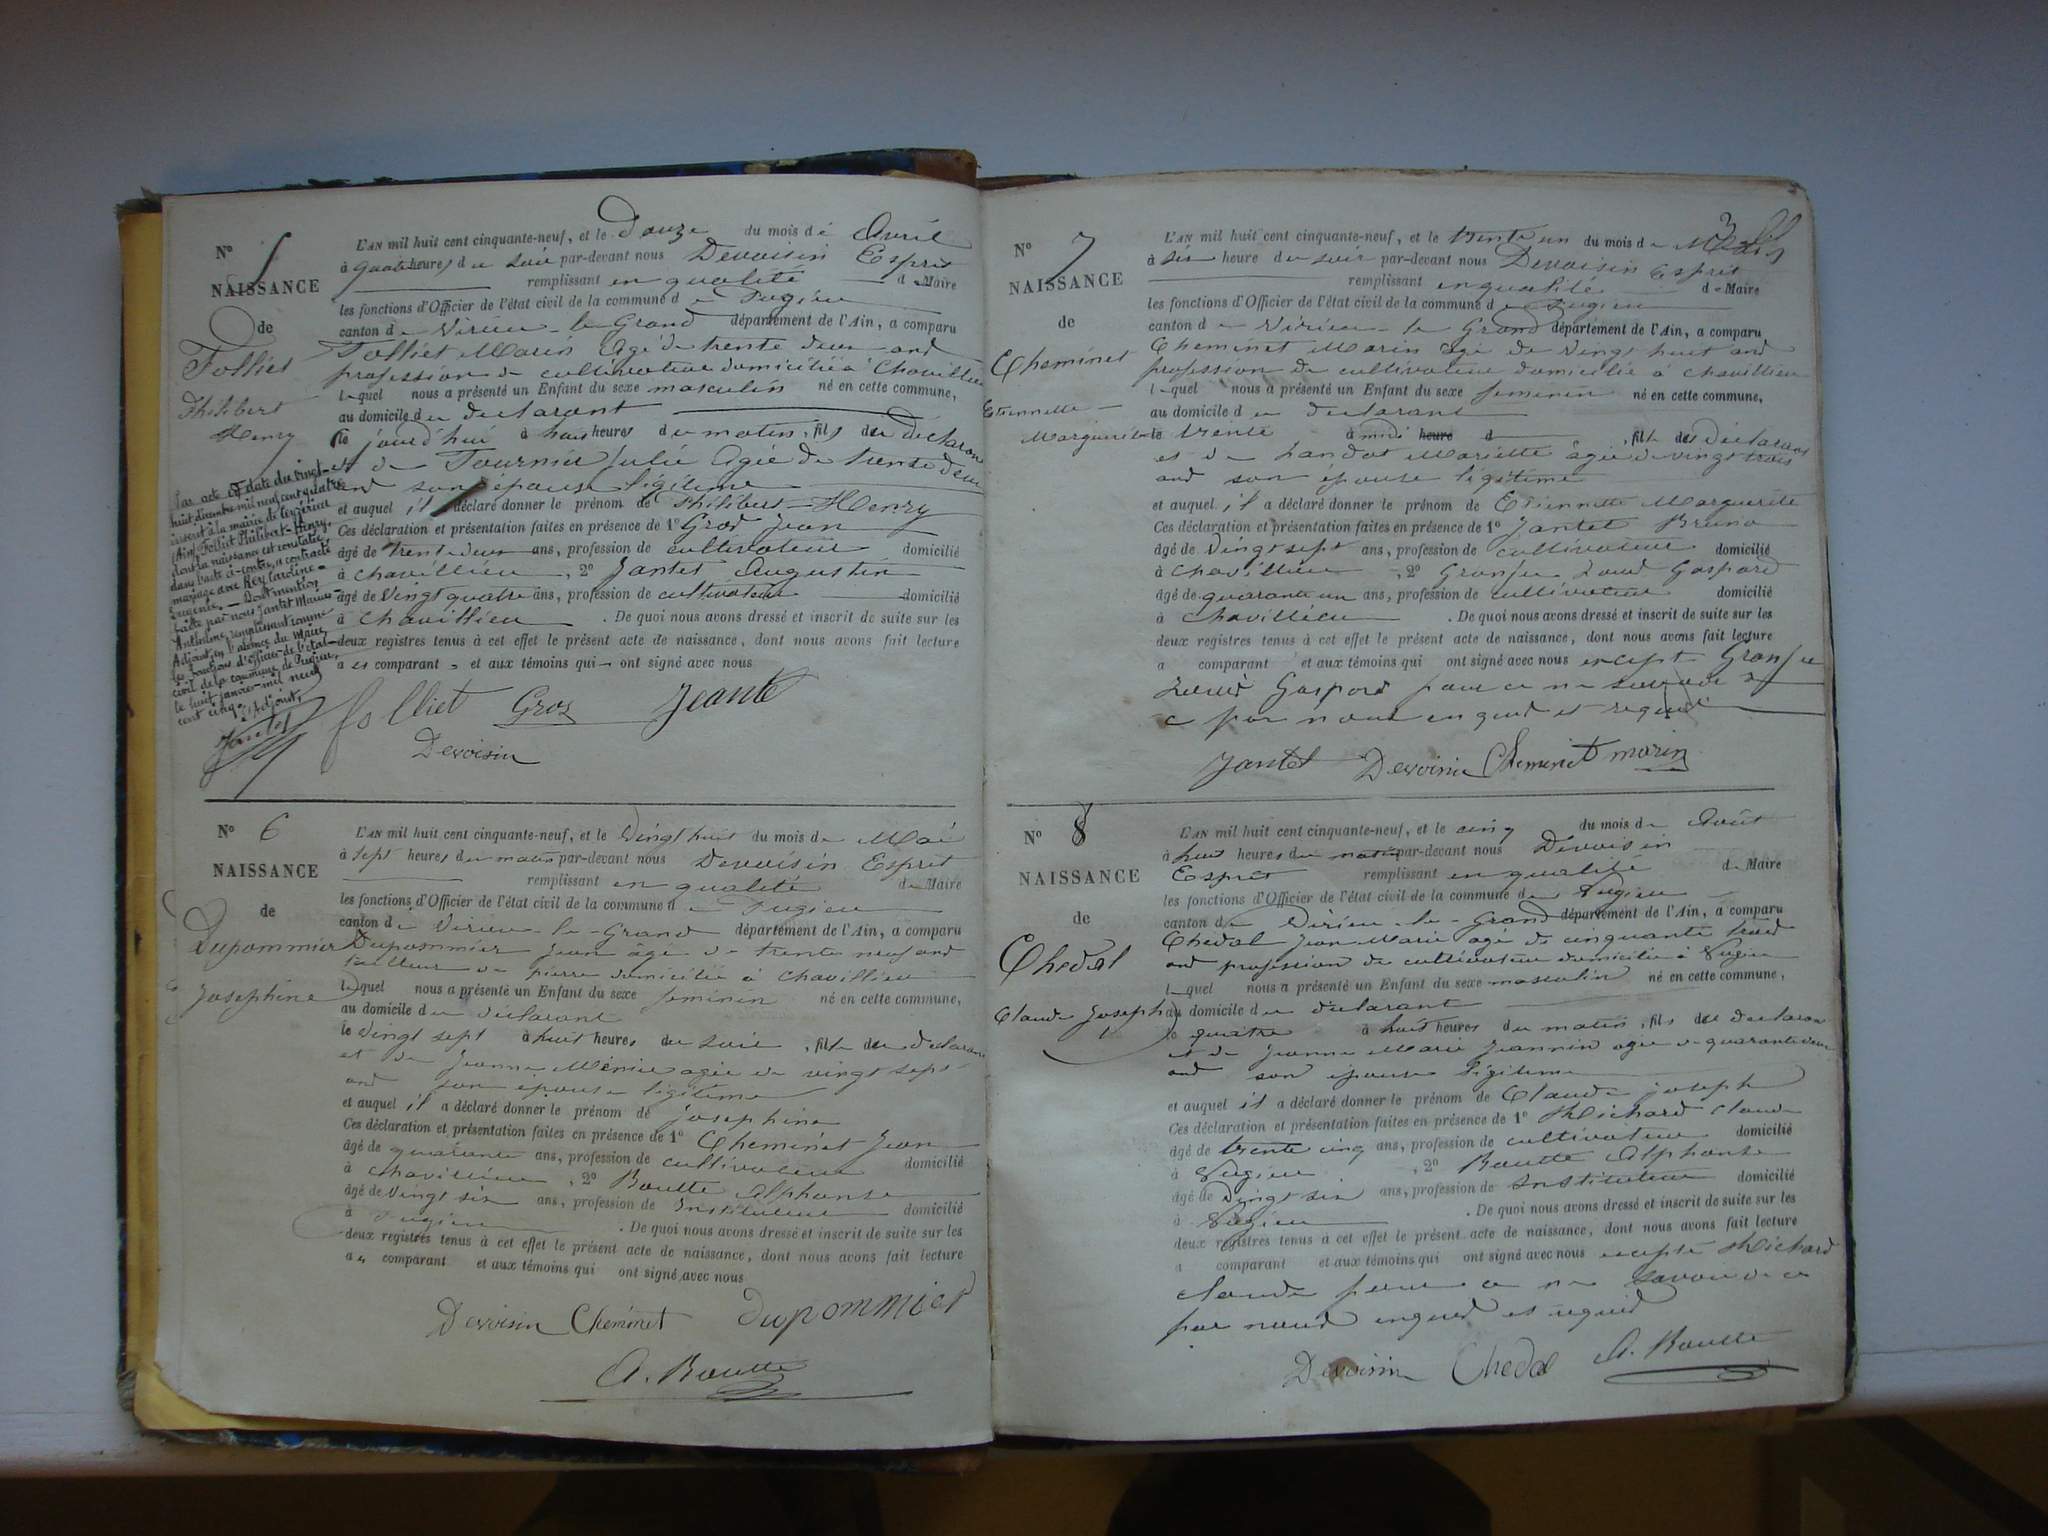 N° 5
NAISSANCE
de
Folliet
Philibert
Henry
Par acte en date du vingt-
huit décembre mil neuf cent quatre
à la mairie de
(Ain) Folliet Philibert-Henry,
dont la naissance est constatée
dans l'acte ci-contre, a contracté
mariage avec Rey Caroline
Eugénie. — Dont mention
faite par nous Jantet Marius
Anthelme, remplissant comme
Adjoint, en l'absence du Maire,
les fonctions d'officier de l'état
civil de la commune de Pugieu,
le huit janvier mil neuf
cent cinq.
L'Adjoint,
Jantet
L'AN mil huit cent cinquante-neuf, et le Douze du mois de Avril
à quatre heures du soir par-devant nous Devoisin Esprit
remplissant en qualité de Maire
les fonctions d'Officier de l'état civil de la commune de Pugieu
canton de Virieu-le-Grand département de l'Ain, a comparu
Folliet Marin Agé de trente deux ans
profession de cultivateur domicilié à Chavillieu
lequel nous a présenté un Enfant du sexe masculin né en cette commune,
au domicile du declarant
le jourd'hui à huit heures du matin, fils du declarant
et de Fournier Julie Agée de trente deux
ans son épouse légitime
et auquel il a déclaré donner le prénom de Philibert-Henry
Ces déclaration et présentation faites en présence de 1° Gros Jean
âgé de trente deux ans, profession de cultivateur domicilié
à Chavillieu, 2° Jantet Augustin
âgé de vingt quatre ans, profession de cultivateur domicilié
à Chavillieu. De quoi nous avons dressé et inscrit de suite sur les
deux registres tenus à cet effet le présent acte de naissance, dont nous avons fait lecture
aux comparant et aux témoins qui ont signé avec nous
folliet Gros Jeante
Devoisin
N° 6
NAISSANCE
de
Dupommier
Josephine
L'AN mil huit cent cinquante-neuf, et le vingt huit du mois de Mai
à sept heures du matin par-devant nous Devoisin Esprit
remplissant en qualité de Maire
les fonctions d'Officier de l'état civil de la commune de Pugieu
canton de Virieu-le-Grand département de l'Ain, a comparu
Dupommier Jean âgé de trente neuf ans
tailleur de pierre domicilié à Chavillieu
lequel nous a présenté un Enfant du sexe feminin né en cette commune,
au domicile du declarant
le vingt sept à huit heures du soir, fille du declarant
et de Jeanne agée de vingt sept
ans son épouse légitime
et auquel il a déclaré donner le prénom de Josephine
Ces déclaration et présentation faites en présence de 1° Cheminet Jean
âgé de quarante ans, profession de cultivateur domicilié
à Chavillieu, 2° Boutte Alphonse
âgé de vingt six ans, profession de Instituteur domicilié
à Pugieu. De quoi nous avons dressé et inscrit de suite sur les
deux registres tenus à cet effet le présent acte de naissance, dont nous avons fait lecture
au comparant et aux témoins qui ont signé avec nous
Devoisin Cheminet Dupommier
A. Boutte
N° 7
NAISSANCE
de
Cheminet
Etiennette
Marguerite
3
L'AN mil huit cent cinquante-neuf, et le trente un du mois de
à six heure du soir par-devant nous Devoisin Esprit
remplissant en qualité de Maire
les fonctions d'Officier de l'état civil de la commune de Pugieu
canton de Virieu-le Grand département de l'Ain, a comparu
Cheminet Marin agé de vingt huit ans
profession de cultivateur domicilié à Chavillieu
lequel nous a présenté un Enfant du sexe feminin né en cette commune,
au domicile du declarant
le trente à midi heure d , fille du declarant
et de Landot Mariette âgée de vingt trois
ans son épouse légitime
et auquel il a déclaré donner le prénom de Etiennette Marguerite
Ces déclaration et présentation faites en présence de 1° Jantet Bruno
âgé de vingt sept ans, profession de cultivateur domicilié
à Chavillieu, 2° Granjeu Louis Gaspard
âgé de quarante un ans, profession de cultivateur domicilié
à Chavillieu. De quoi nous avons dressé et inscrit de suite sur les
deux registres tenus à cet effet le présent acte de naissance, dont nous avons fait lecture
a comparant et aux témoins qui ont signé avec nous except Granjeu
Louis Gaspard pour ce ne savoir de
ce par nous enquis et requis
Jantet Devoisin Cheminet marin
N° 8
NAISSANCE
de
Chedal
Claude Joseph
L'AN mil huit cent cinquante-neuf, et le cinq du mois de Août
à huit heures du matin par-devant nous Devoisin
Esprit remplissant en qualité de Maire
les fonctions d'Officier de l'état civil de la commune de Pugieu
canton de Virieu-le-Grand département de l'Ain, a comparu
Chedal Jean Marie agé de cinquante trois
ans profession de cultivateur domicilié à Pugieu
lequel nous a présenté un Enfant du sexe masculin né en cette commune,
au domicile du declarant
le quatre à huit heures du matin, fils du declarant
et de Jeanne Marie Jeannin agée de quarante deux
ans son épouse légitime
et auquel il a déclaré donner le prénom de Claude joseph
Ces déclaration et présentation faites en présence de 1° Michard Claude
âgé de trente cinq ans, profession de cultivateur domicilié
à Pugieu, 2° Boutte Alphonse
âgé de vingt six ans, profession de Instituteur domicilié
à Pugieu. De quoi nous avons dressé et inscrit de suite sur les
deux registres tenus à cet effet le présent acte de naissance, dont nous avons fait lecture
a comparant et aux témoins qui ont signé avec nous excepté Michard
claude pour ce ne savoir de ce
par nous enquis et requis
Devoisin Chedal A. Boutte